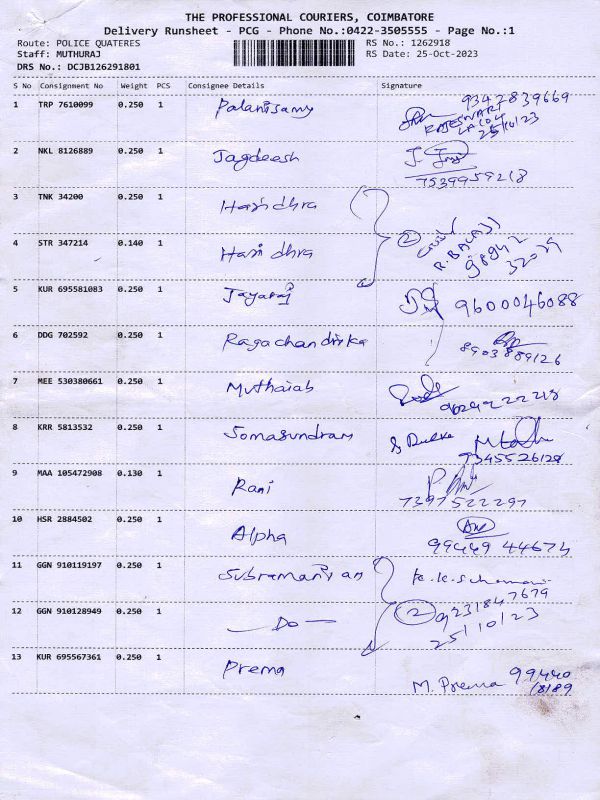 THE PROFESSIONAL COURIERS, COIMBATORE
Delivery Runsheet - PCG - Phone No.:0422-3505555 - Page No.:1
Route: POLICE QUATERES RS No.: 1262918
Staff: MUTHURAJ RS Date: 25-Oct-2023
DRS No.: DCJB126291801
S No Consignment No Weight PCS Consignee Details Signature
1 TRP 7610099 0.250 1 Palanisamy 9342839669
RAJESWARI
25/10/23
2 NKL 8126889 0.250 1 Jagdeesh
7539959218
3 TNK 34200 0.250 1 Hasi dhra
4 STR 347214 0.140 1 Hasi dhra 2
R. BALAJI
98942
32029
5 KUR 695581083 0.250 1 Jayaraj 9600046088
6 DDG 702592 0.250 1 Ragachandrika
8903889126
7 MEE 530380661 0.250 1 Muthaiah
8 KRR 5813532 0.250 1 Somasundram
9345526128
9 MAA 105472908 0.130 1 Rani
7397522297
10 HSR 2884502 0.250 1 Alpha
99449 44674
11 GGN 910119197 0.250 1 Subramaniyan
12 GGN 910128949 0.250 1 — Do — 2 9231847679
25/10/23
13 KUR 695567361 0.250 1 Prema M. Prema 99440
18189